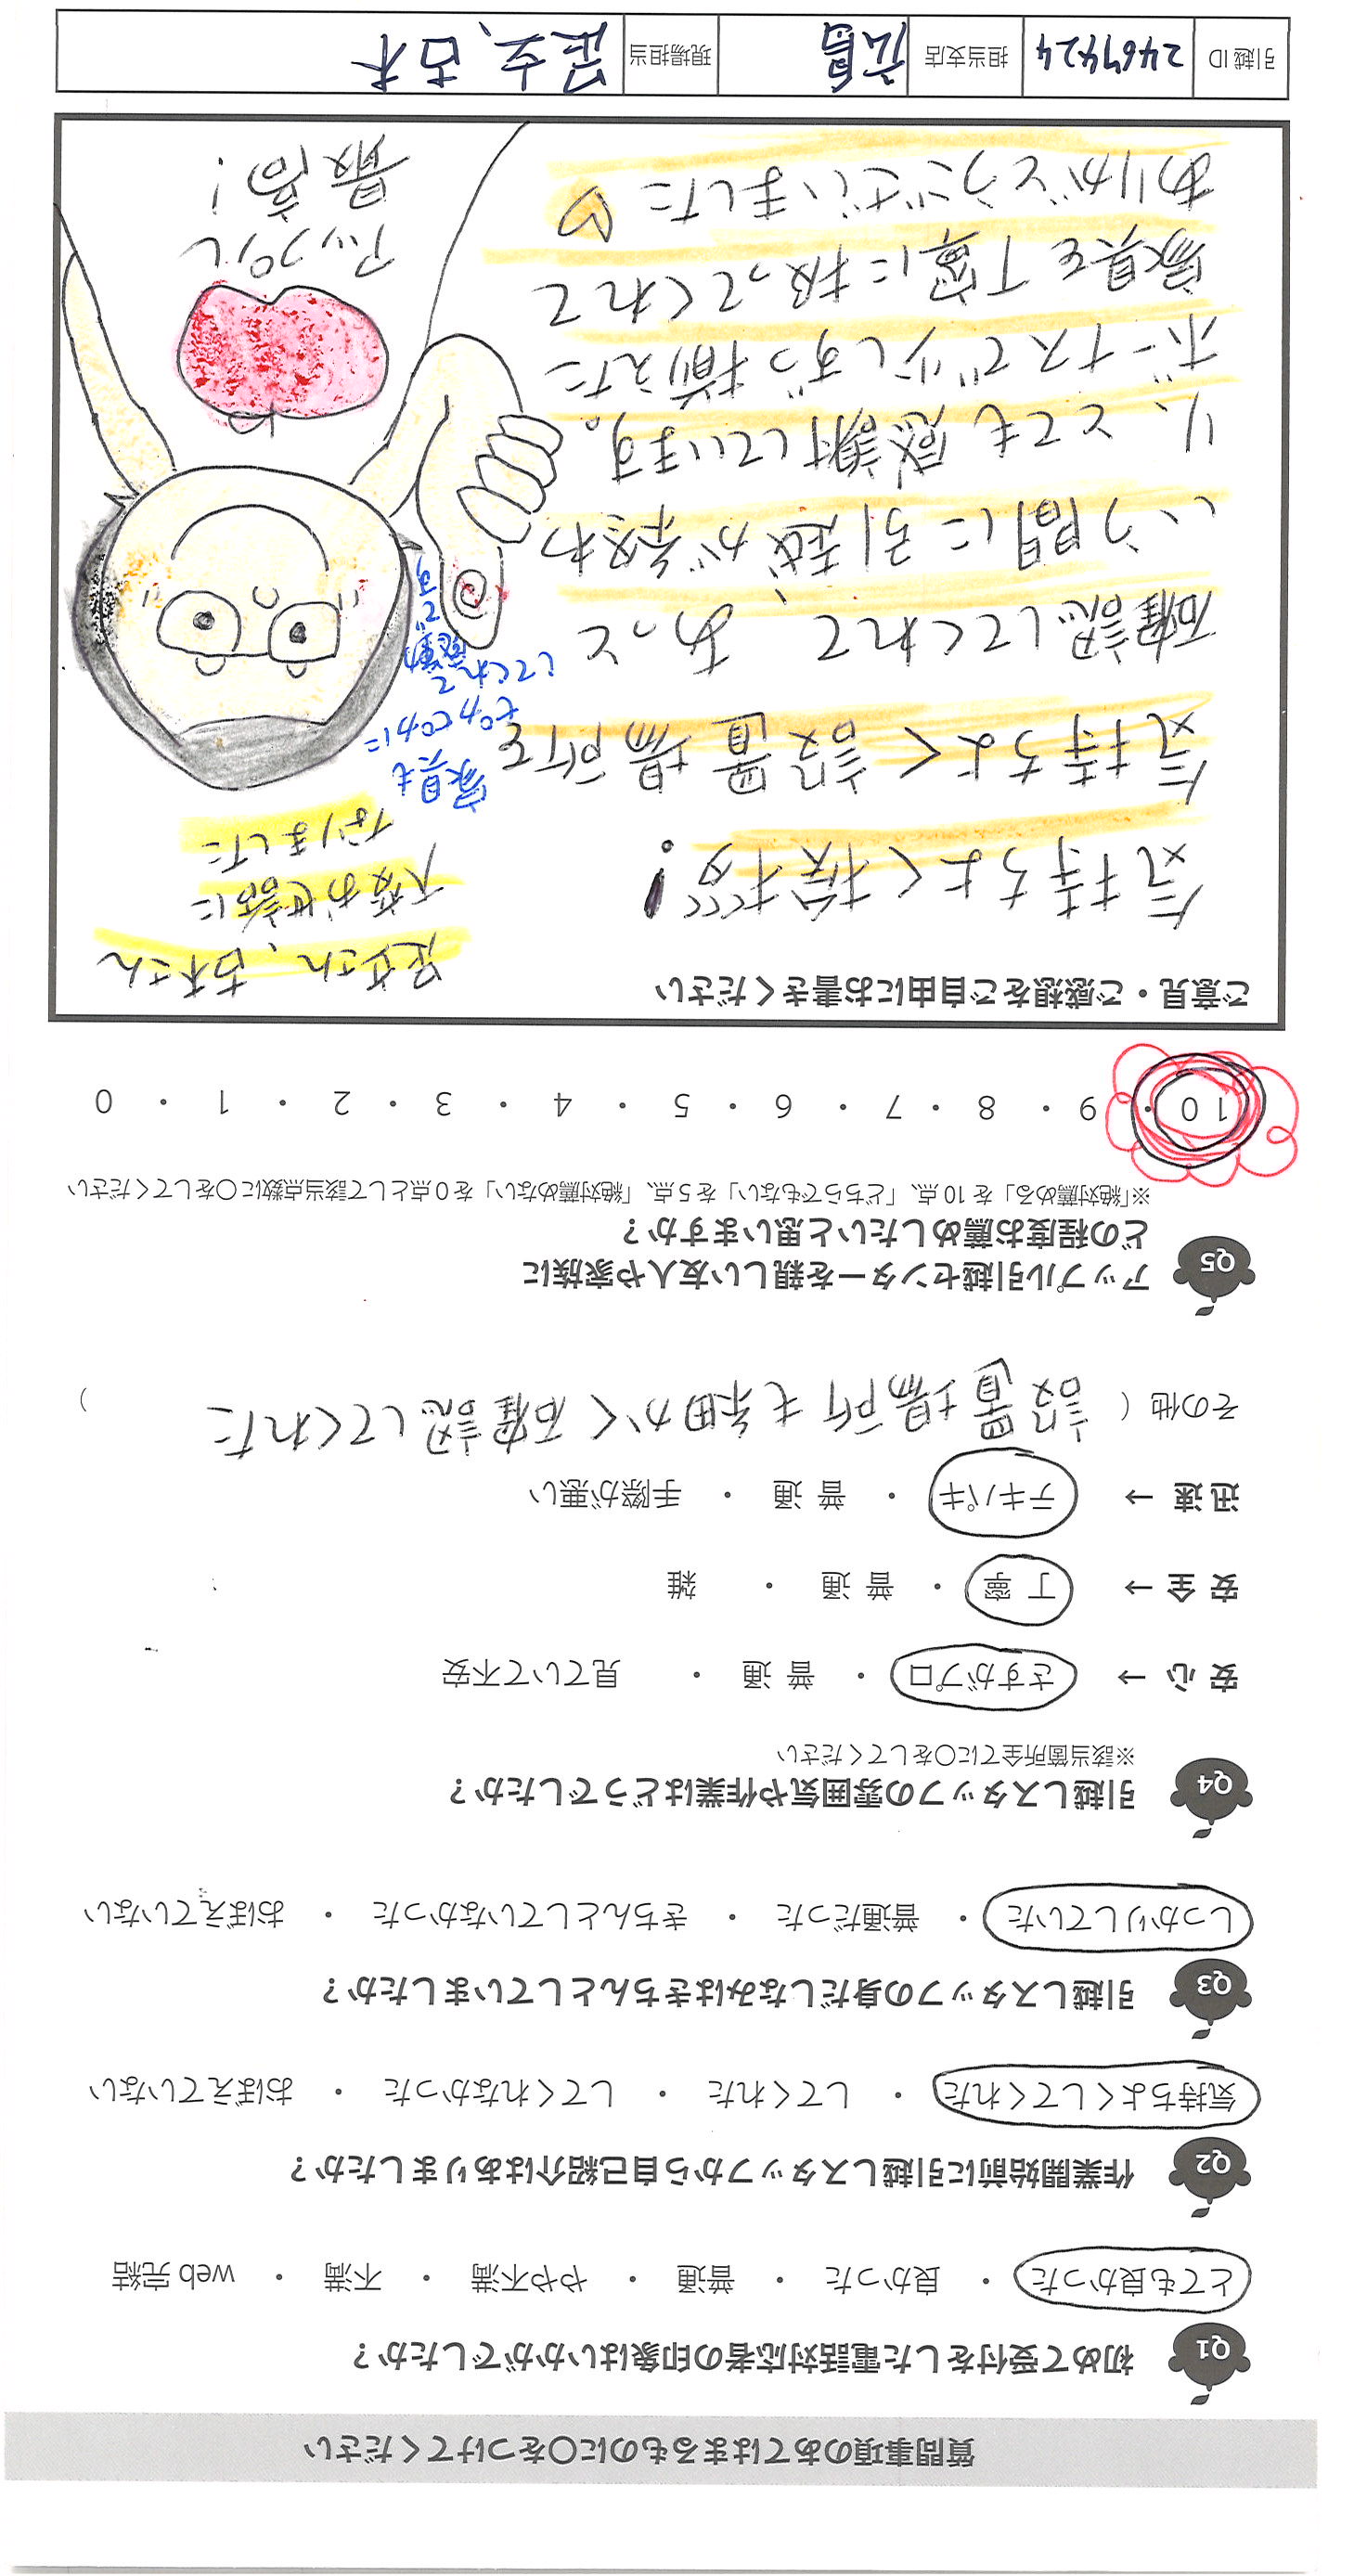 質問事項のあてはまるものに○をつけてください
Q1 初めて受付をした電話対応者の印象はいかがでしたか？
とても良かった ・ 良かった ・ 普通 ・ やや不満 ・ 不満 ・ web 完結
Q2 作業開始前に引越しスタッフから自己紹介はありましたか？
気持ちよくしてくれた ・ してくれた ・ してくれなかった ・ おぼえていない
Q3 引越しスタッフの身だしなみはきちんとしていましたか？
しっかりしていた ・ 普通だった ・ きちんとしていなかった ・ おぼえていない
Q4 引越しスタッフの雰囲気や作業はどうでしたか？
※該当箇所全てに○をしてください
安 心 → さすがプロ ・ 普 通 ・ 見ていて不安
安 全 → 丁 寧 ・ 普 通 ・ 雑
迅 速 → テキパキ ・ 普 通 ・ 手際が悪い
その他（ 設置場所も細かく確認してくれた ）
Q5 アップル引越センターを親しい友人や家族に
どの程度お薦めしたいと思いますか？
※「絶対薦める」を 10 点、「どちらでもない」を 5 点、「絶対薦めない」を 0 点として該当点数に○をしてください
10 ・ 9 ・ 8 ・ 7 ・ 6 ・ 5 ・ 4 ・ 3 ・ 2 ・ 1 ・ 0
ご意見・ご感想をご自由にお書きください
気持ちよく挨拶!
気持ちよく設置場所を
確認してくれて、あっと
いう間に引越が終わ
り、とても感謝しています。
ボーナスで少しずつ揃えた
家具を丁寧に扱ってくれて
ありがとうございました♡
足立さん、吉木さん
大変お世話に
なりました
家具も
ピカピカに
してくれて
感動
です
アップル
最高!
引越 ID 2469424 担当支店 広島 現場担当 足立、吉木